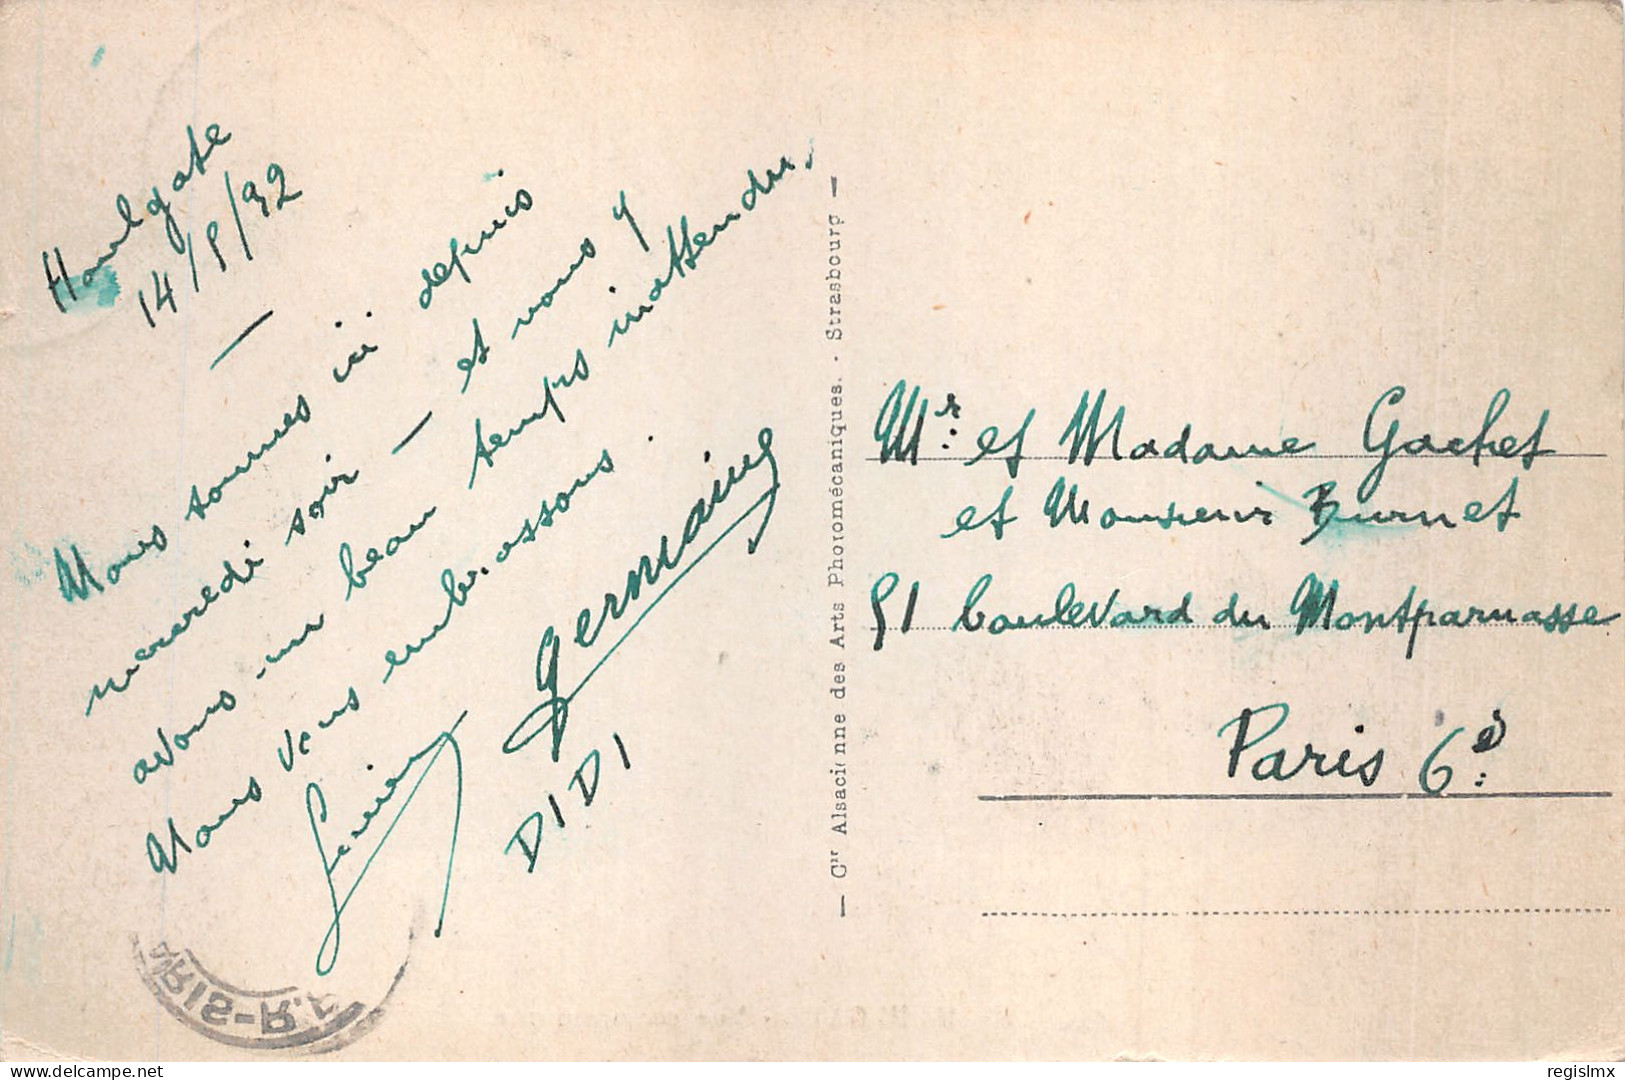 Houlgate
14/8/32
Nous sommes ici depuis
mercredi soir - et nous y
avons un beau temps inattendu,
Nous vous embrassons.
Germaine
DIDI
— Cie Alsacienne des Arts Photomécaniques. - Strasbourg —
Mr: et Madame Gachet
et Monsieur Burnet
51 boulevard du Montparnasse
Paris 6e:
PARIS-R.P.
delcampe.net
regislmx